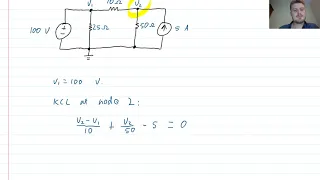 V₁ 10Ω V₂
100 V 25Ω 50Ω 5 A
V₁ = 100 V.
KCL at node 2:
V₂ - V₁ / 10 + V₂ / 50 - 5 = 0